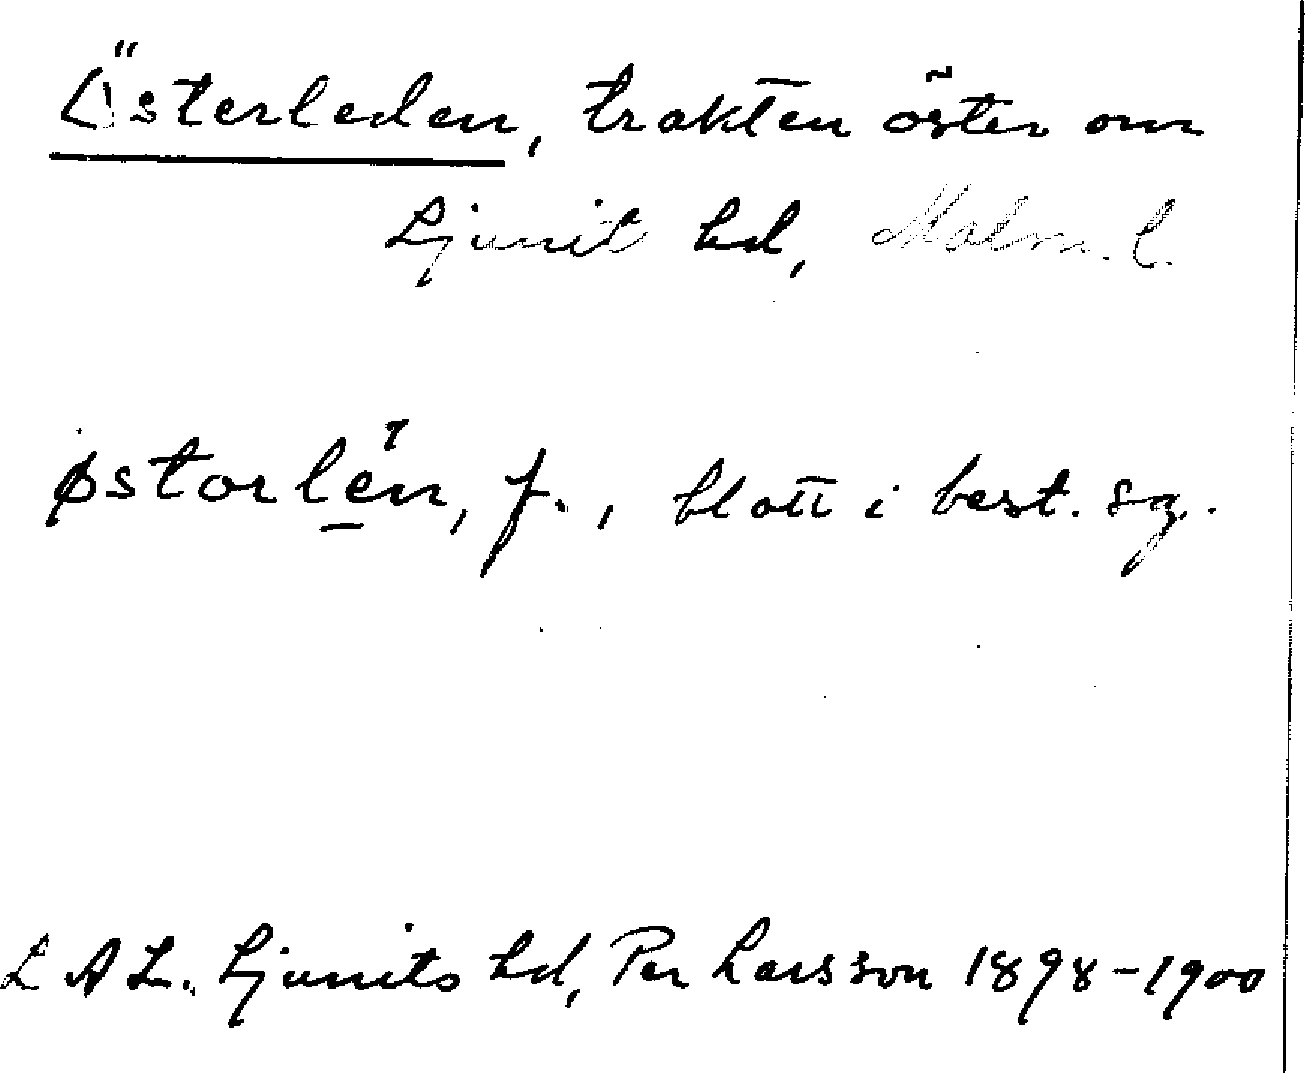 Österleden, trakten öster om
Ljunit hd, Malm. l.
østorlen, f., blott i best. sg.
LAL. Ljunits hd, Per Larsson 1898-1900